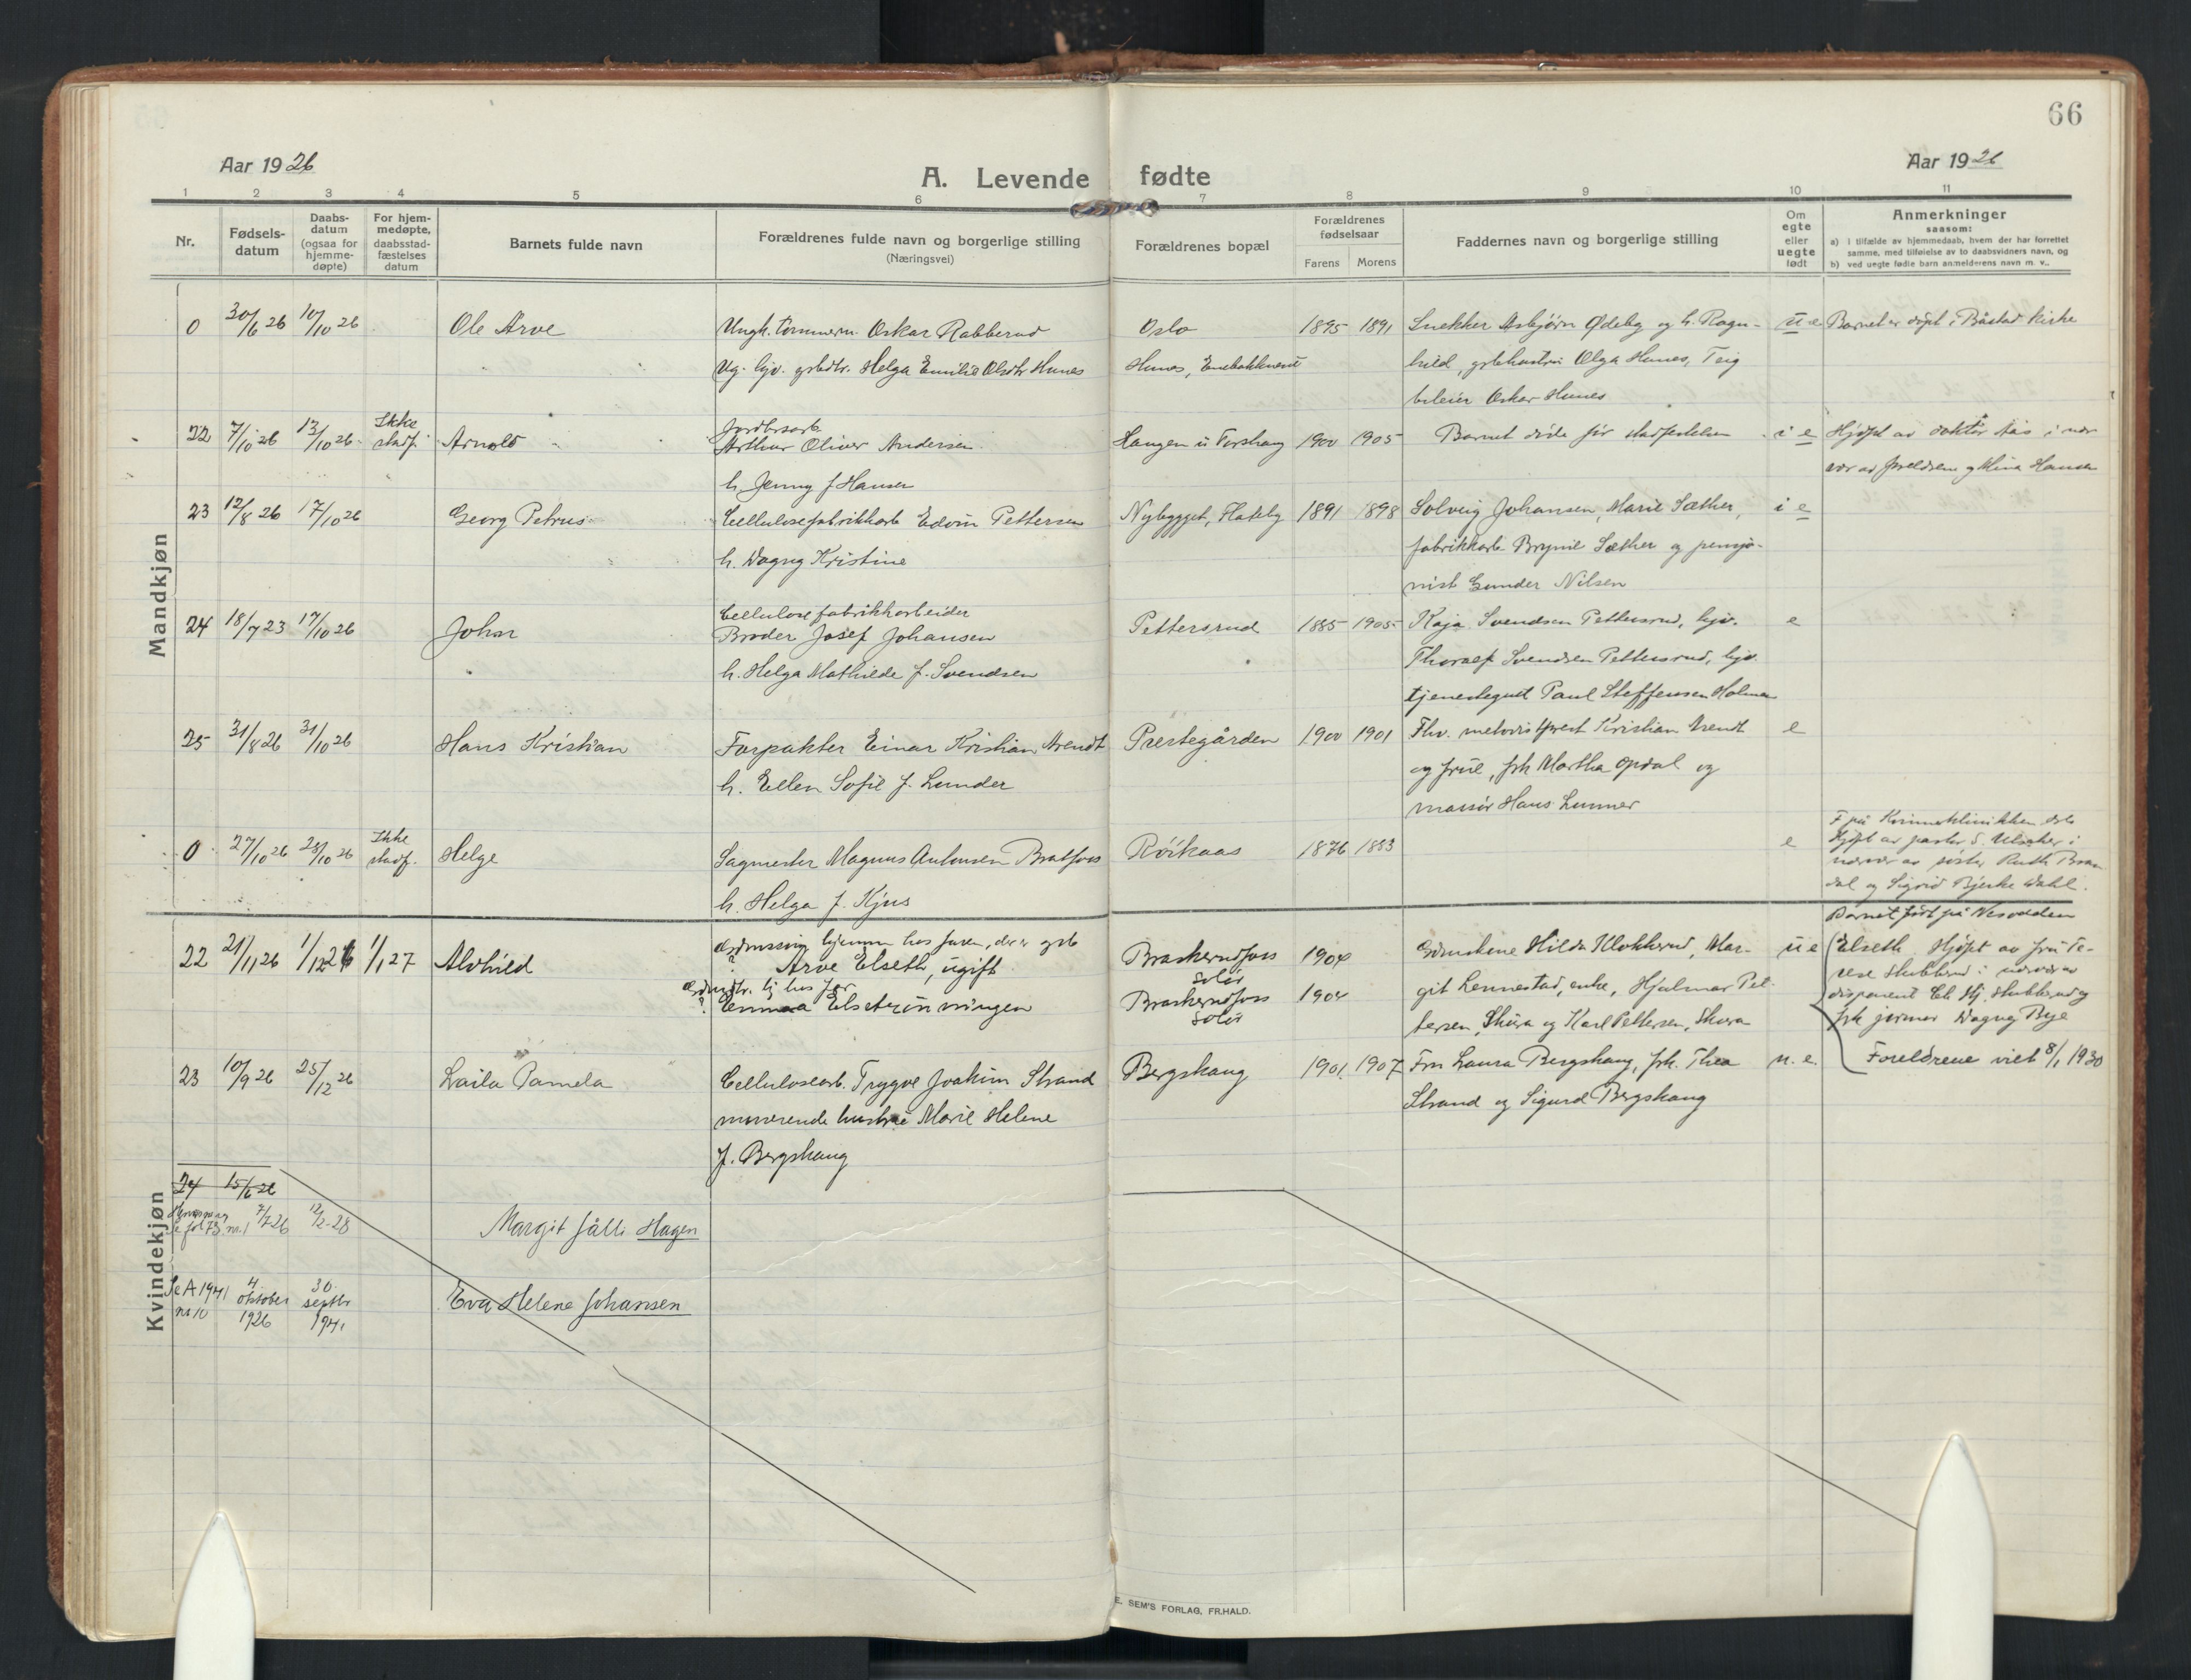 66
Aar 1926
A. Levende fødte
Aar 1926
1 2 3 4 5 6 7 8 9 10 11
Nr.
Fødsels-
datum
Daabs-
datum
(ogsaa for
hjemme-
døpte)
For hjem-
medøpte,
daabsstad-
fæstelses
datum
Barnets fulde navn
Forældrenes fulde navn og borgerlige stilling
(Næringsvei)
Forældrenes bopæl
Forældrenes
fødselsaar
Farens Morens
Faddernes navn og borgerlige stilling
Om
egte
eller
uegte
født
Anmerkninger
saasom:
a) i tilfælde av hjemmedaab, hvem der har forrettet
samme, med tilføielse av to daabsvidners navn, og
b) ved uegte fødte barn anmelderens navn m. v..
Mandkjøn
0 30/6 26 10/10 26 Ole Arve Ungk. tømmerm. Oskar Rabberud Oslo 1895 1891 Snekker Asbjørn Ødeby og h. Ragn- u e Barnet er døpt i Båstad kirke
Ug. hjv. grbdtr. Helga Emilie Olsdtr Hunes Hunes, Enebakkneset hild, grbhustru Olga Hunes, Teig
bileier Oskar Hunes
22 7/10 26 13/10 26 Ikke stadf. Arnold Jordbrsarb.
Arthur Oliver Andersen Haugen u Torshaug 1900 1905 Barnet døde før stadfestelsen i e Hjdpt av doktor Aas i nær
h. Jenny f Hansen vær av foreldrene og Mina Hansen
23 12/8 26 17/10 26 Georg Petrus Cellulosefabrikkarb Edvin Pettersen Nybygget, Flateby 1891 1898 Solveig Johansen, Marie Sæther, i e
h. Dagny Kristine fabrikkarb. Brynil Sæther og pensjo-
nist Gunder Nilsen
24 18/7 23 17/10 26 Johan Cellulosefabrikkarbeider
Broder Josef Johansen Pettersrud 1885 1905 Kaja Svendsen Pettersrud, hjv. e
h. Helga Mathilde f. Svendsen Thoralf Svendsen Pettersrud, hjv.
tjenestegut Paul Steffensen Holmen
25 31/8 26 31/10 26 Hans Kristian Forpakter Einar Kristian Arendt Prestegården 1900 1901 Fhv. metodistprest Kristian Arendt e
h. Ellen Sofie f. Lunder og frue, frk Martha Opdal og
massør Hans Lunner
0 27/10 26 28/10 26 Ikke stadf. Helge Sagmester Magnus Antonsen Bratfoss Röikaas 1876 1883 e F på Kvinneklinikken Oslo
h. Helga f. Kjus Hjdpt av pastor S. i
nærvær av søster Ruth
dal og Sigrid Bjerke Dahl.
Kvindekjøn
22 21/11 26 1/12 26 1/1 27 Alvhild hjemme hos faren, der er grb
? Arve Elseth, ugift Braskerudfoss 1904 Grdmskone Hilda Klokkerud, Mar- u e
Solør
hj hos far
? Emma Elsetrønningen Braskerudfoss 1904 git Lennestad, enke, Hjalmar Pet-
Solør
tersen, Skura og Karl Pettersen, Skura
Barnet født på Nesodden
Elseth Hjdpt av fru Te-
rese Stubberud i nærvær av
disponent Chr. Hj. Stubberud og
frk jormor Dagny Bye
Foreldrene viet 8/1 1930
23 10/9 26 25/12 26 Laila Pamela Cellulosearb. Trygve Joakim Strand Bergshaug 1901 1907 Fru Laura Bergshaug, frk. Thea u. e.
nuværende hustru Marie Helene Strand og Sigurd Bergshaug
f. Bergshaug
24 15/6 26
Henvisning
se fol 73 nr. 1 7/7 26 12/2-28 Margit Jålli Hagen
Se A 1941
nr 10 4 oktober 1926 30. septbr 1941 Eva Helene Johansen
E. SEM'S FORLAG, FR.HALD.